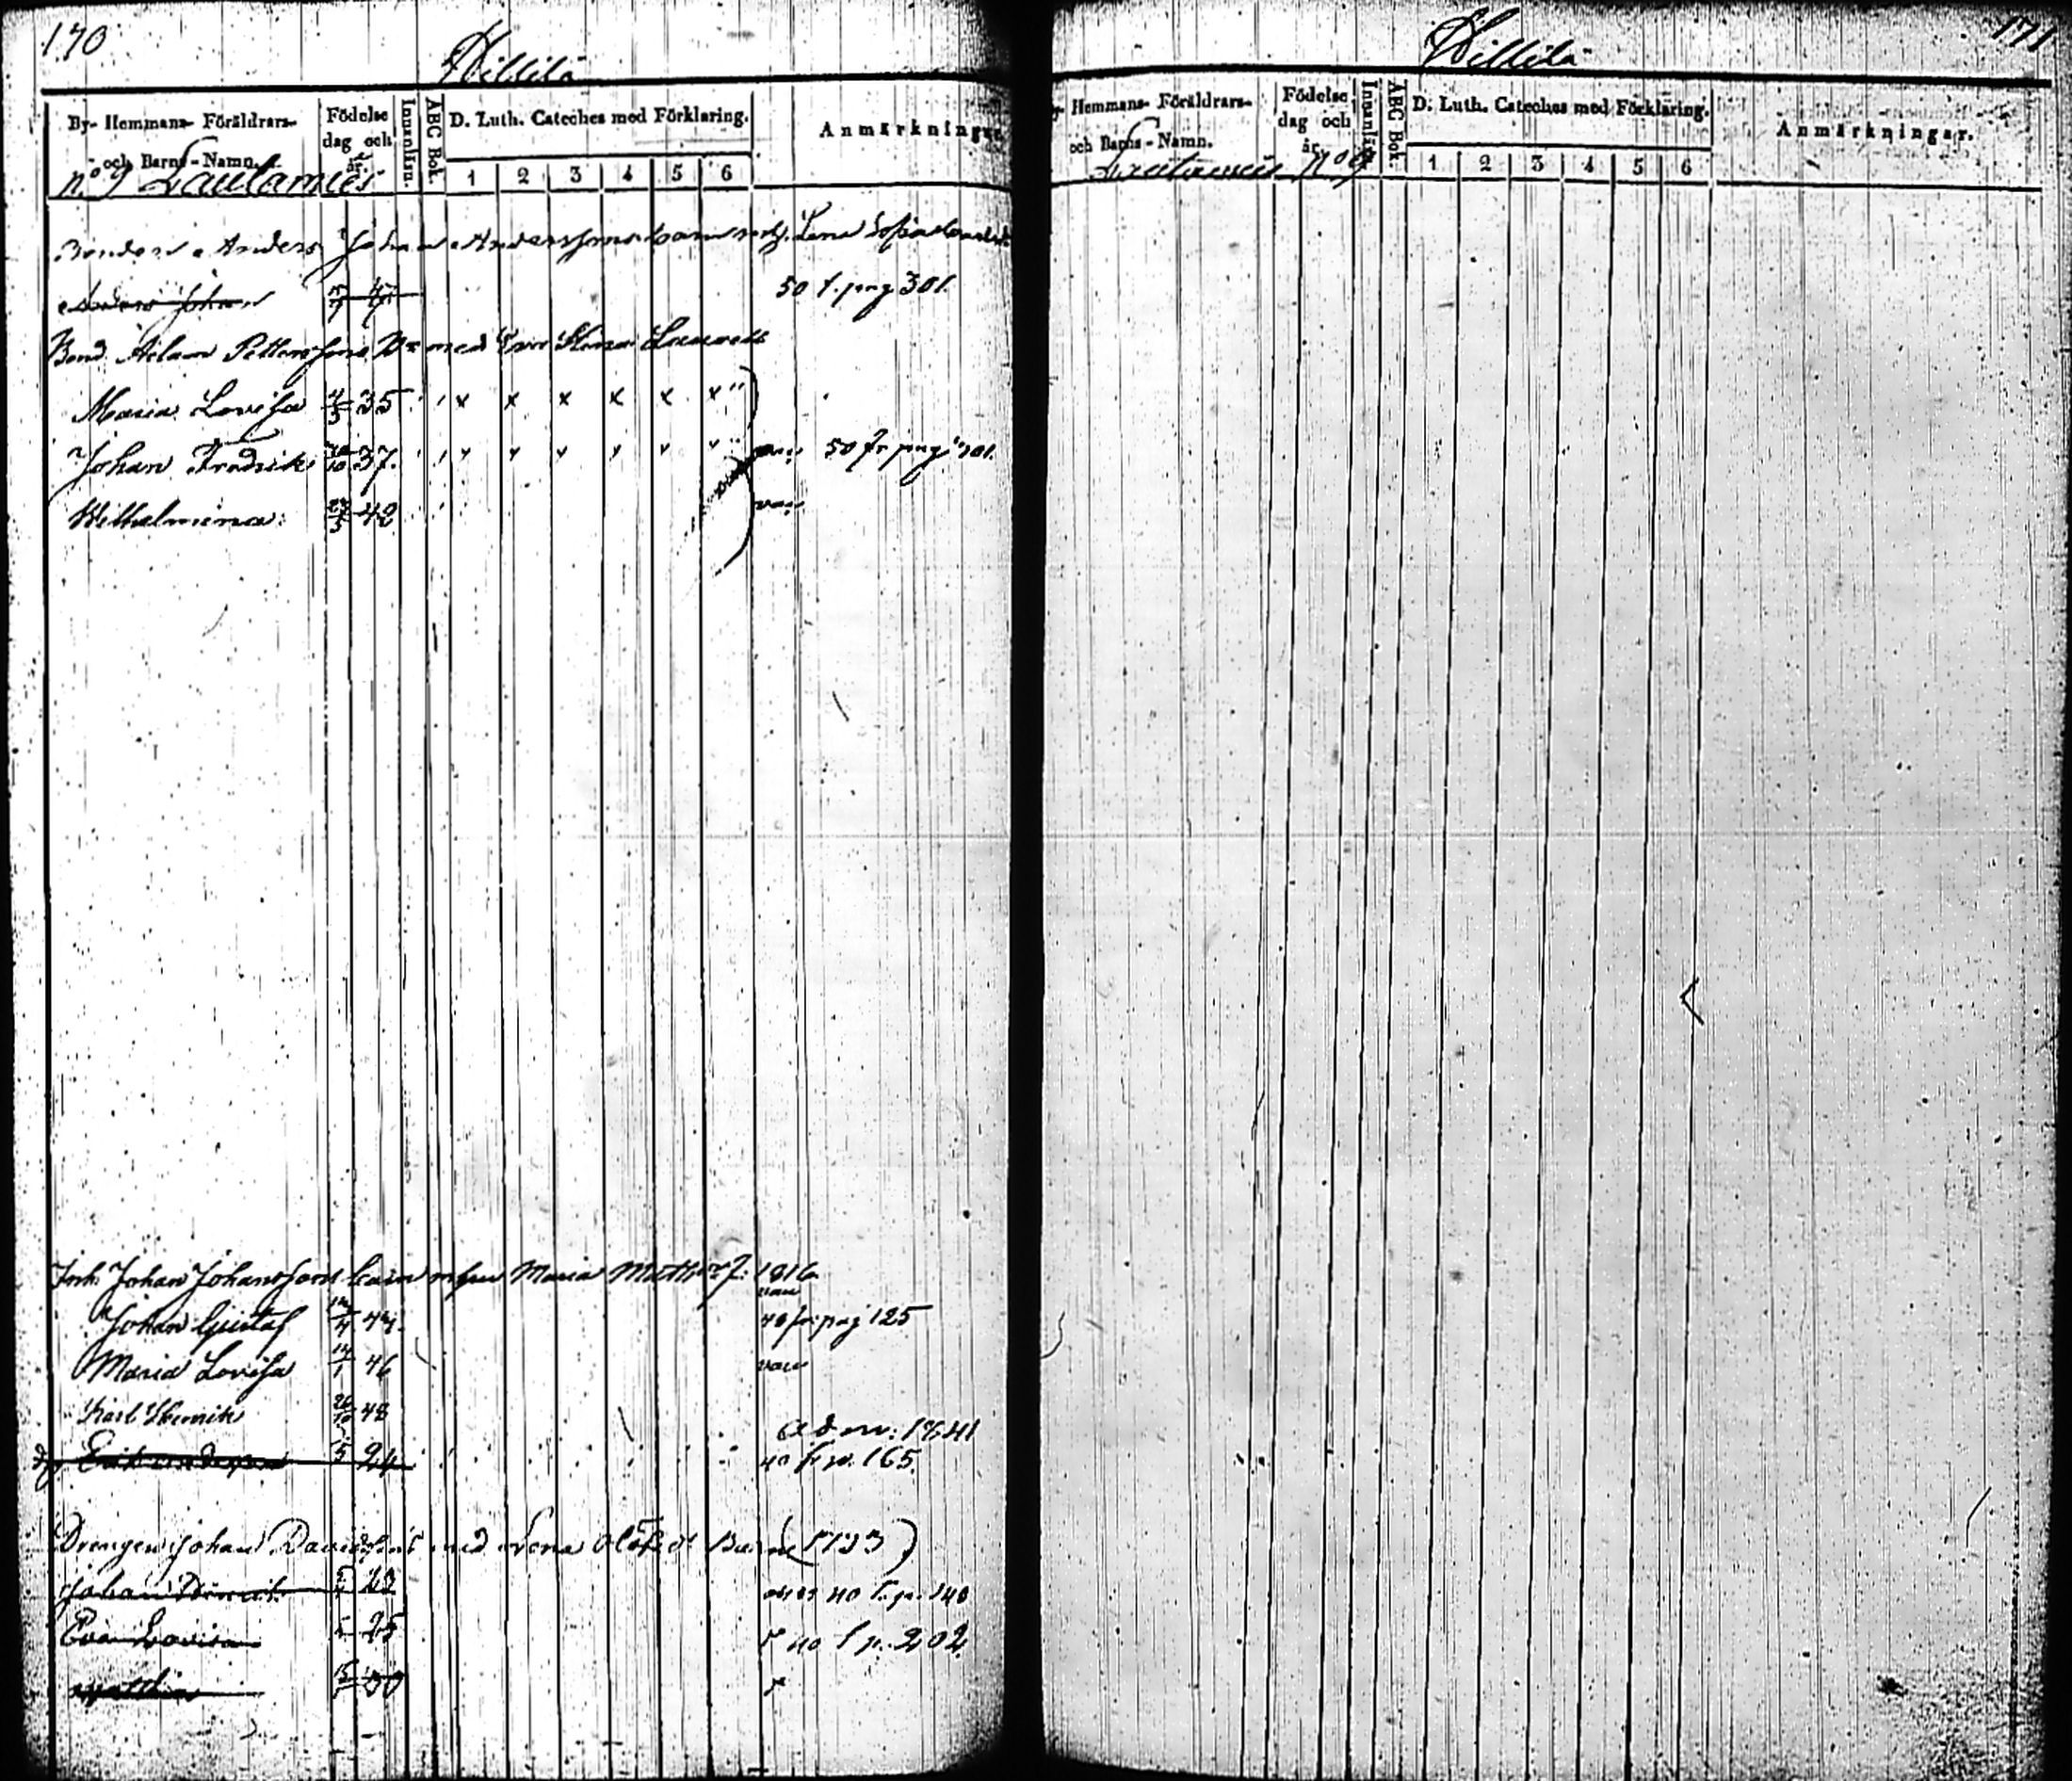 170
Willilä
By- Hemmans- Föräldrars-
och Barns-Namn.
Födelse
dag och
år.
Innanläsn.
ABC Bok.
D. Luth. Cateches med Förklaring.
1 2 3 4 5 6
Anmärkningar
No 9 Lautamies
Bonden Anders Johan Anderssons barn m. h. Lena Sofia
Anders Johan 47
50 f. pag 301.
Bond. Adam Petterssons Br med Eva Stina
Maria Lovisa 4/5 35 x x x x x x
Johan Fredrik 10 37. 50 fr pag 301.
Wilhelmina 42 vac
Inh. Johan Johanssons barn m hu Maria Math 1816
vac
Johan Gustaf 12/4 44. 40 fr pag 125
Maria Lovisa 14/1 46 vac
Karl Henrik 26/10 48
Adm: 1841
5 24 40 fr p. 165
Drengen Johan Davidssons med Lena Olofsd Barn (1793)
Johan Henrik 23 40 f. p. 140
Eva Lovisa 25 40 f p. 202
15 30
171
Willilä
By- Hemmans- Föräldrars-
och Barns-Namn.
Födelse
dag och
år.
Innanläsn.
ABC Bok.
D. Luth. Cateches med Förklaring.
1 2 3 4 5 6
Anmärkningar.
Lautamies No 9